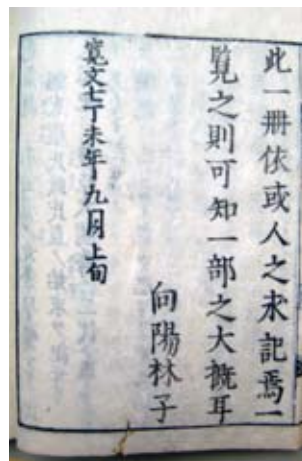 此一册依或人之求記焉一
覧之則可知一部之大概耳
向陽林子
寛文七丁未年九月上旬